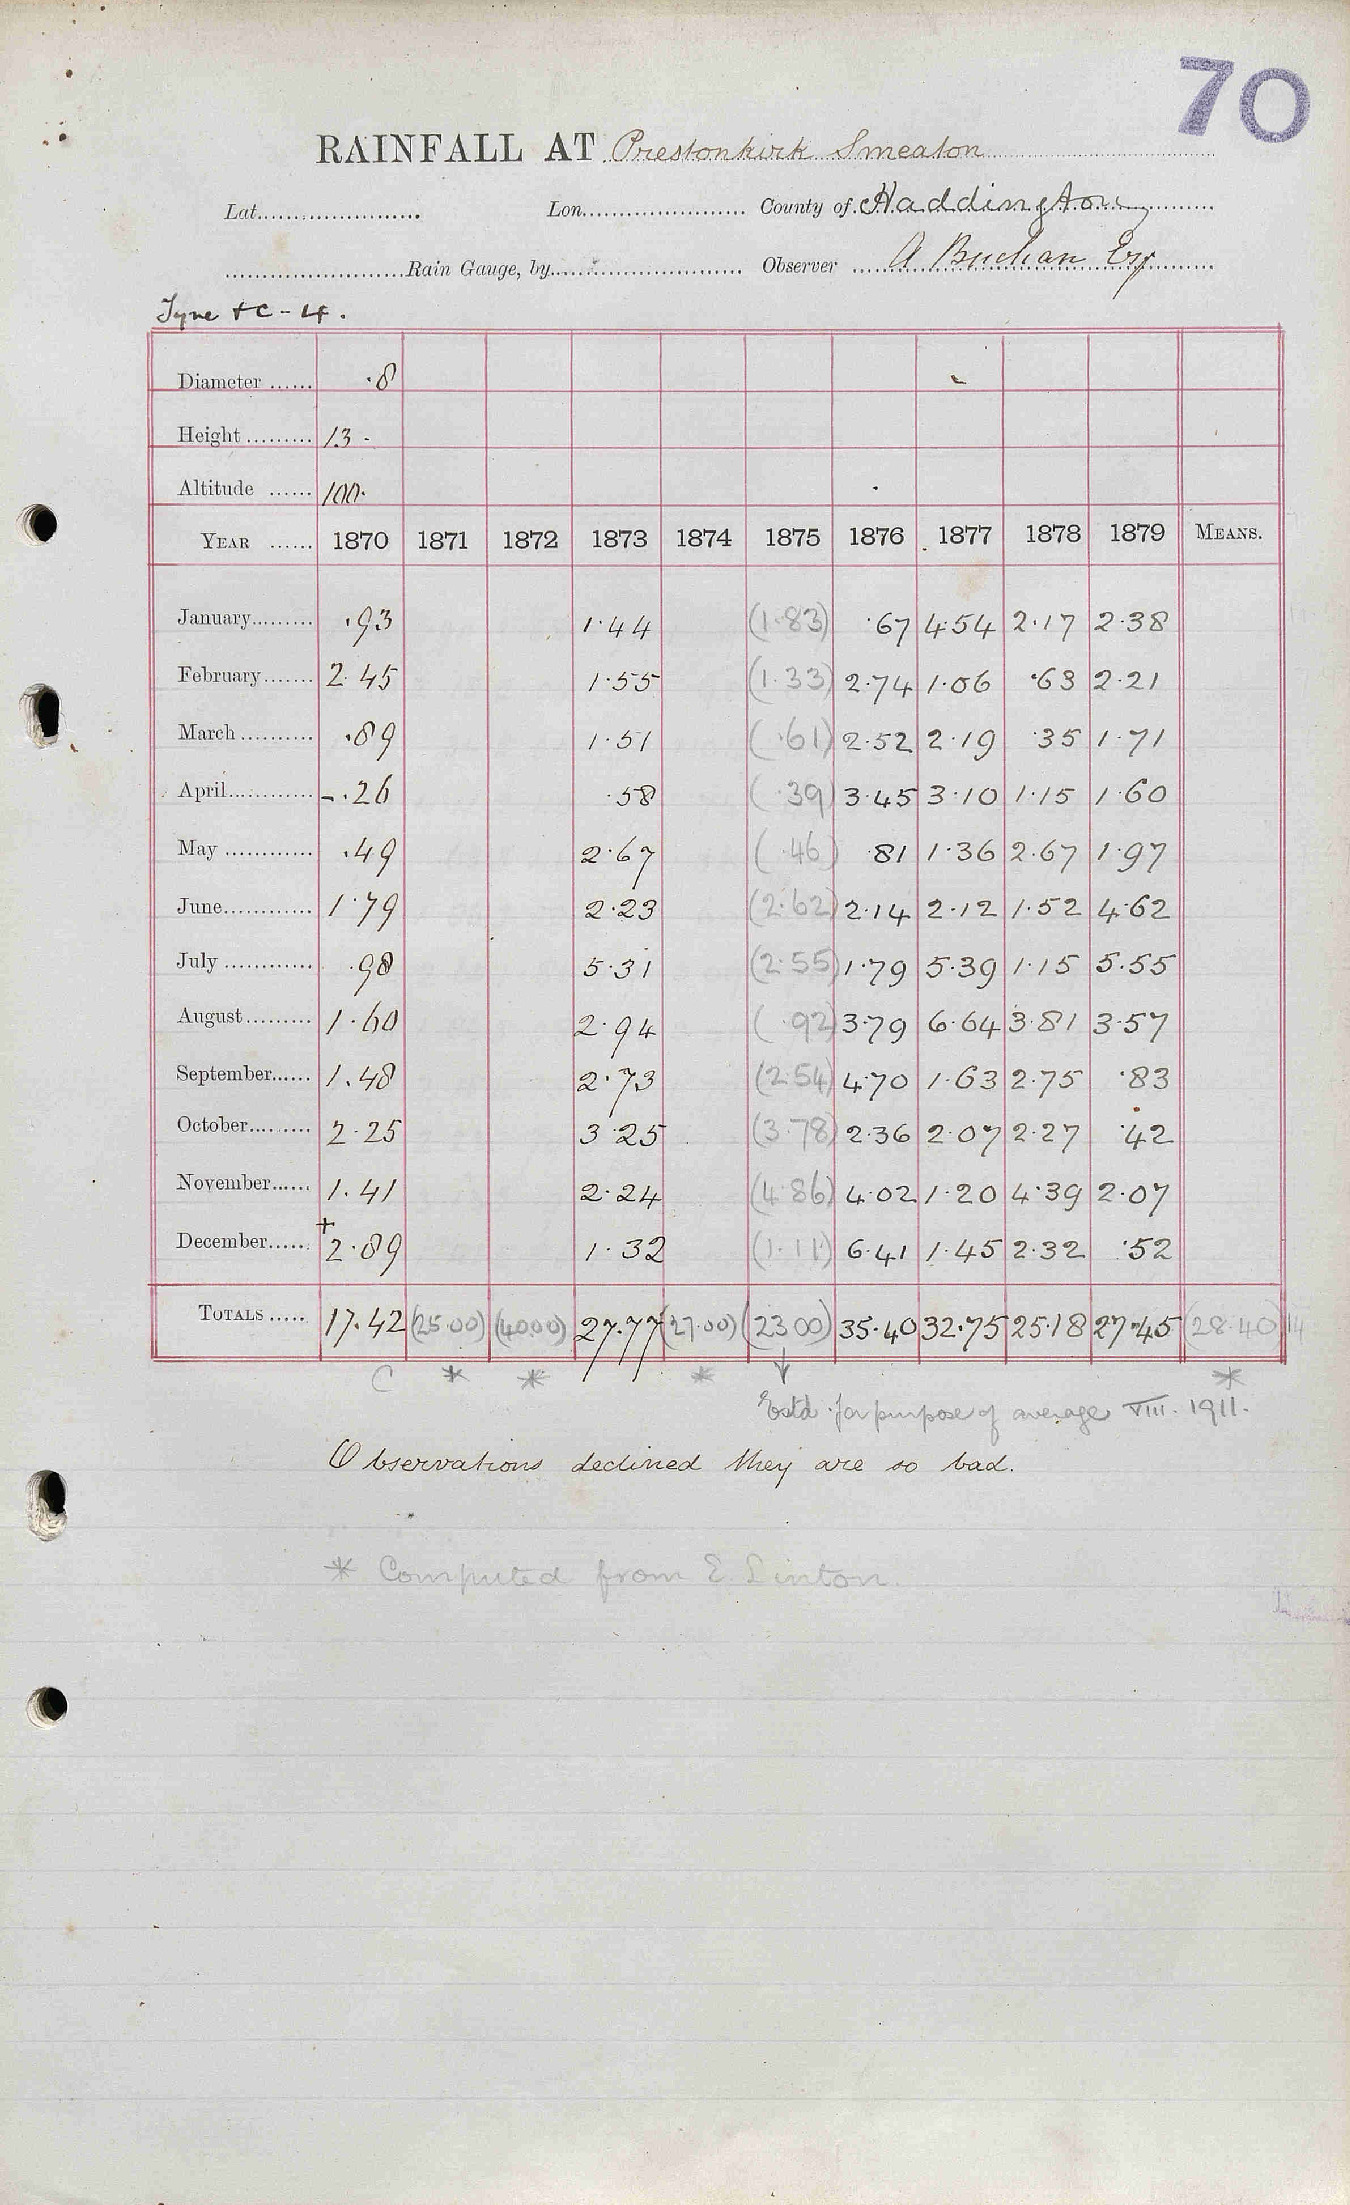 70
RAINFALL AT Prestonkirk Smeaton
Lat. Lon. County of Haddington
Rain Gauge, by Observer A Buchan Esq
Tyne + C - 4.
Diameter ...... ·8
Height ......... 13 -
Altitude ...... 100·
YEAR ...... 1870 1871 1872 1873 1874 1875 1876 1877 1878 1879 MEANS.
January......... ·93 1·44 (1·83) ·67 4·54 2·17 2·38
February....... 2·45 1·55 (1·33) 2·74 1·06 ·63 2·21
March .......... ·89 1·51 (·61) 2·52 2·19 ·35 1·71
April............ -·26 ·58 (·39) 3·45 3·10 1·15 1·60
May ............ ·49 2·67 (·46) ·81 1·36 2·67 1·97
June............ 1·79 2·23 (2·62) 2·14 2·12 1·52 4·62
July ............ ·98 5·31 (2·55) 1·79 5·39 1·15 5·55
August......... 1·60 2·94 (·92) 3·79 6·64 3·81 3·57
September...... 1·48 2·73 (2·54) 4·70 1·63 2·75 ·83
October......... 2·25 3·25 (3·78) 2·36 2·07 2·27 ·42
November...... 1·41 2·24 (4·86) 4·02 1·20 4·39 2·07
December...... +2·89 1·32 (1·11) 6·41 1·45 2·32 ·52
TOTALS ..... 17·42 (25·00) (40·00) 27·77 (27·00) (23·00) 35·40 32·75 25·18 27·45 (28·40) 14
C * * * ↓ *
Estd for purpose of average VIII. 1911.
Observations declined they are so bad.
* Computed from E. Linton.